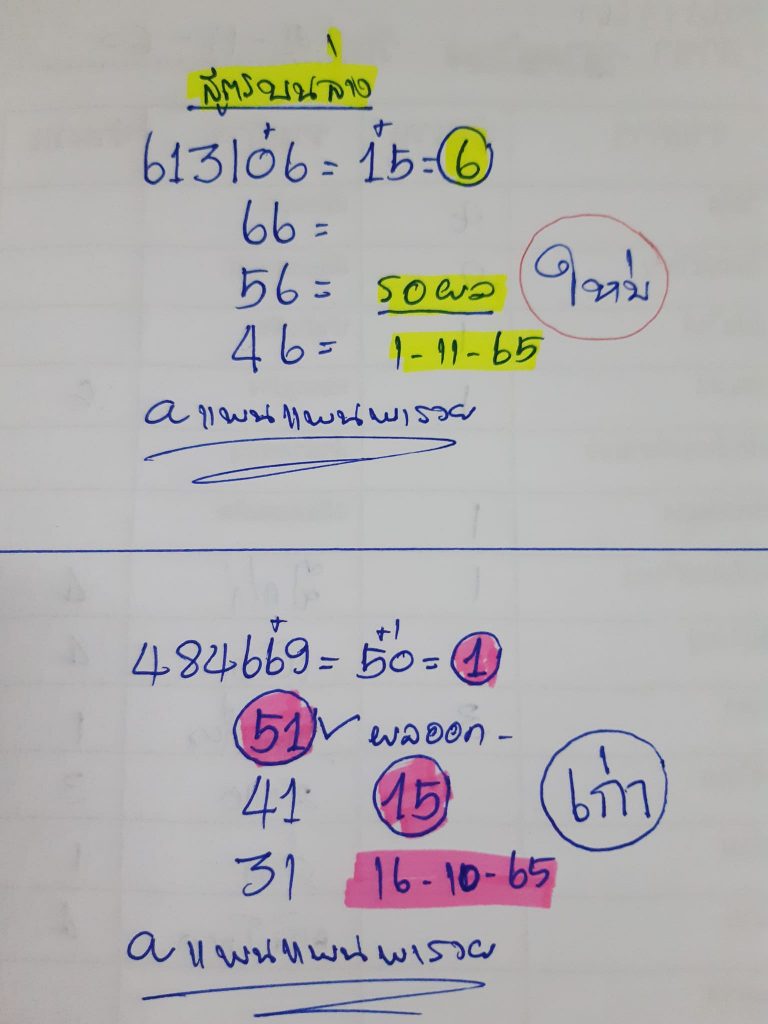 สูตรบนล่าง
613106 = 15 = 6
66 =
56 = รอผล
46 = 1-11-65
ใหม่
a แพนแพนพารวย
484669 = 50 = 1
51 ✓ ผลออก -
41 15
31 16-10-65
เก่า
a แพนแพนพารวย